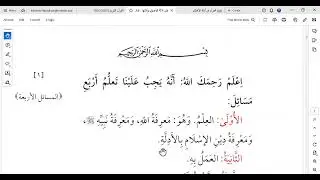 بِسْمِ اللهِ الرَّحْمَنِ الرَّحِيمِ
اِعْلَمْ رَحِمَكَ اللهُ: أَنَّهُ يَجِبُ عَلَيْنَا تَعَلُّمُ أَرْبَعِ
[١]
مَسَائِلَ:
((المسائل الأربعة))
الْأُولَى: الْعِلْمُ. وَهُوَ: مَعْرِفَةُ اللهِ، وَمَعْرِفَةُ نَبِيِّهِ ﷺ،
وَمَعْرِفَةُ دِينِ الْإِسْلَامِ بِالْأَدِلَّةِ.
الثَّانِيَةُ: الْعَمَلُ بِهِ.